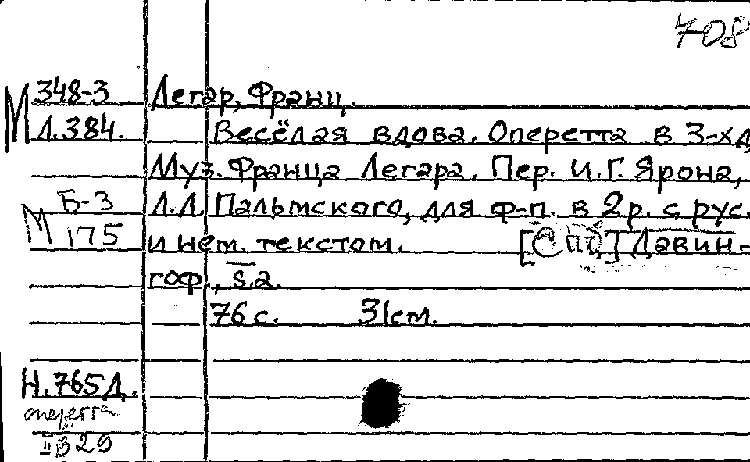 708
М 348-3
Л.384.
Легар, Франц.
Весёлая вдова. Оперетта в 3-хд
Муз. Франца Легара. Пер. И.Г. Ярона,
Л.Л. Пальмского, для ф-п. в 2р. с рус.
и нем. текстом. [СПб] Давин-
гоф, s.a.
76 с. 31см.
М Б-3
175
Н.765Д.
оперетта
II В 29